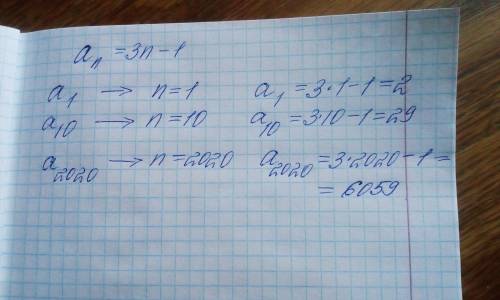 aₙ = 3n − 1
a₁ → n = 1 a₁ = 3·1−1 = 2
a₁₀ → n = 10 a₁₀ = 3·10−1 = 29
a₂₀₂₀ → n = 2020 a₂₀₂₀ = 3·2020−1 =
= 6059